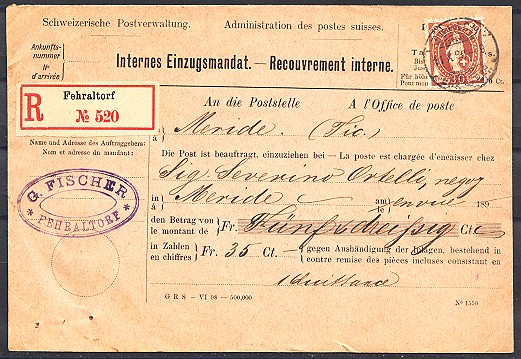 Schweizerische Postverwaltung. Administration des postes suisses.
Ankunfts-
nummer
No
d'arrivée
Internes Einzugsmandat. — Recouvrement interne.
R
Fehraltorf
№ 520
An die Poststelle A l'Office de poste
à Meride. (Tic.)
Name und Adresse des Auftraggebers:
Nom et adresse du mandant:
Die Post ist beauftragt, einzuziehen bei — La poste est chargée d'encaisser chez
Sig Severino Ortelli, negoz
G. FISCHER
* FEHRALTORF *
in
à Meride am
le 189
den Betrag von
le montant de Fr. Fünf & dreißig Cts.
in Zahlen
en chiffres Fr. 35 Ct. gegen Aushändigung der Inlagen, bestehend in
contre remise des pièces incluses consistant en
1 quittance
G R S - VI 98 - 500,000 N° 1550